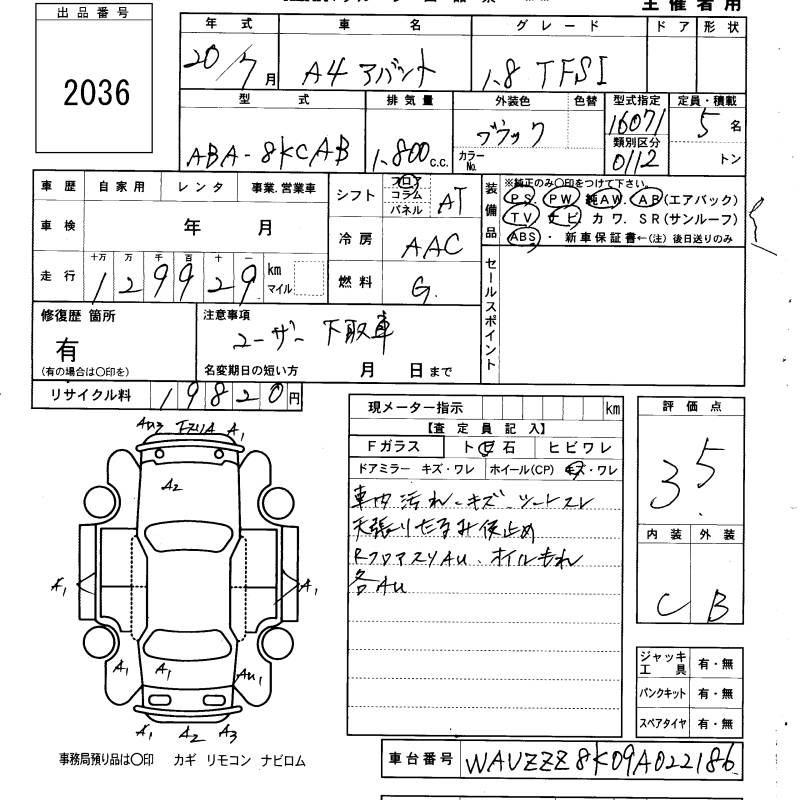 主催者用
出品番号
2036
年式 車名 グレード ドア 形状
20/7月 A4 アバント 1.8 TFSI
型式 排気量 外装色 色替 型式指定 定員・積載
ABA-8KCAB 1,800 c.c. ブラック カラーNo. 16071 5名
類別区分
0112 トン
車歴 自家用 レンタ 事業.営業車
車検 年 月
走行 十万 万 千 百 十 一
129929 km マイル
シフト フロア コラム パネル AT
冷房 AAC
燃料 G.
装備品 ※純正のみ○印をつけて下さい。
PS. PW 純AW. AB(エアバック)
TV ナビ カワ. SR(サンルーフ)
ABS・ 新車保証書←(注) 後日送りのみ
セールスポイント
修復歴 箇所
有
(有の場合は○印を)
注意事項
ユーザー下取車
名変期日の短い方 月 日まで
リサイクル料 19820円
現メーター指示 km
【査定員記入】
Fガラス ト石 ヒビワレ
ドアミラー キズ・ワレ ホイール(CP) キズ・ワレ
車内汚れ・キズ・シートスレ
天張りたるみ仮止め
RフロアスリAu、オイルもれ
各Au
評価点
3.5
内装 外装
C B
ジャッキ工具 有・無
パンクキット 有・無
スペアタイヤ 有・無
A1
A2
A1 A1
A1 A1 Au1
A1 A2 A3
事務局預り品は○印 カギ リモコン ナビロム
車台番号 WAUZZZ8K09A022186